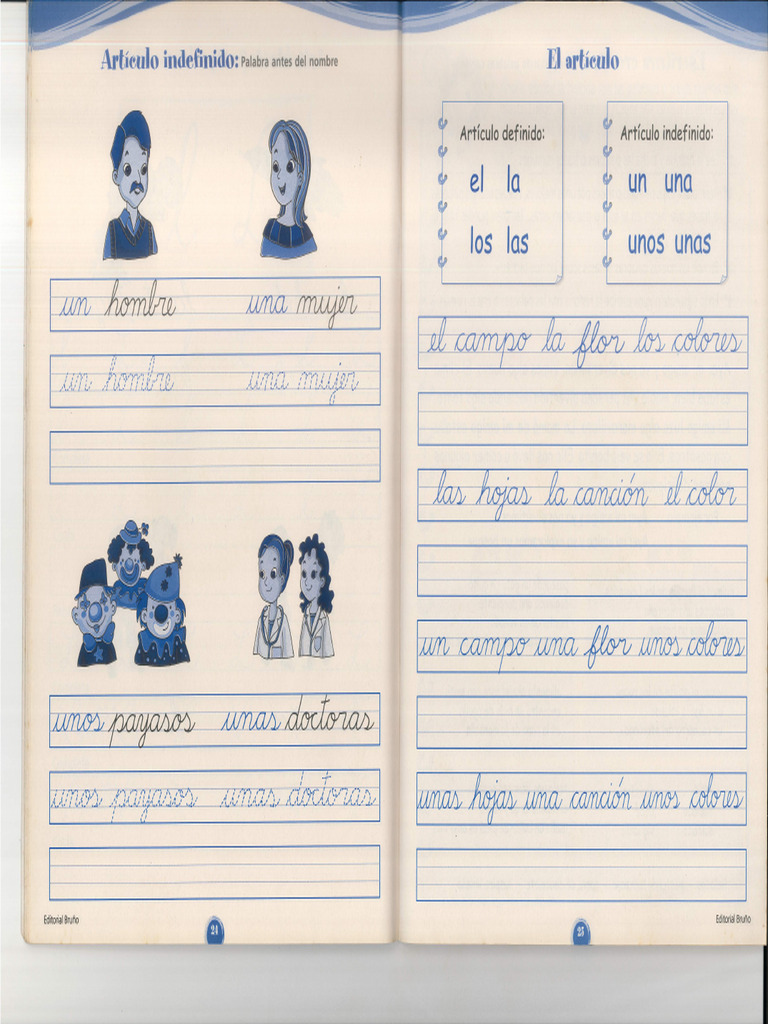 Artículo indefinido: Palabra antes del nombre
un hombre una mujer
un hombre una mujer
unos payasos unas doctoras
unos payasos unas doctoras
Editorial Bruño
24
El artículo
Artículo definido:
el la
los las
Artículo indefinido:
un una
unos unas
el campo la flor los colores
las hojas la canción el color
un campo una flor unos colores
unas hojas una canción unos colores
25
Editorial Bruño